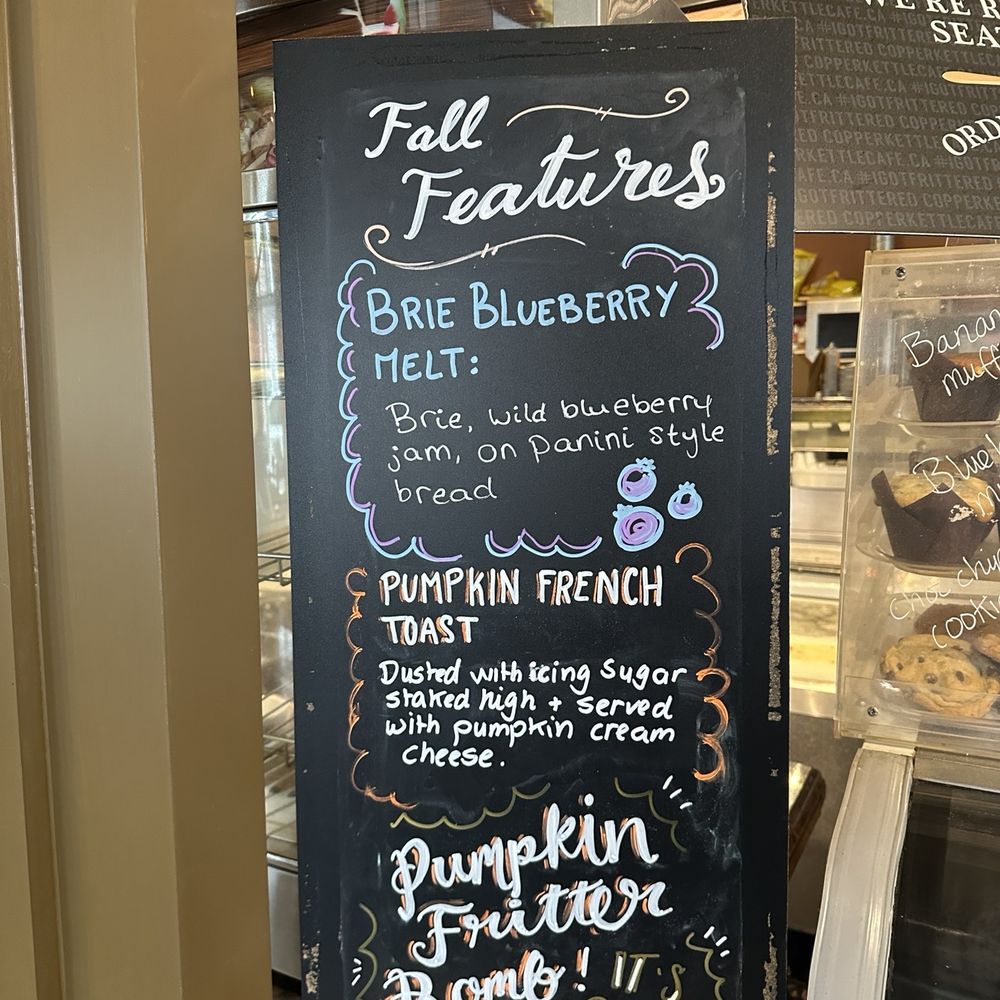 Fall
Features
BRIE BLUEBERRY
MELT:
Brie, wild blueberry
jam, on panini style
bread
PUMPKIN FRENCH
TOAST
Dusted with icing sugar
staked high + served
with pumpkin cream
cheese.
Pumpkin
Fritter
Bomb! IT'S
WE'RE
SEA
ORD
RKETTLECAFE.CA #IGOT
FRITTERED COPPERKETTLECAFE
ETTLECAFE.CA #IGOTFRITTERED
ED COPPERKETTLECAFE.CA
RKETTLECAFE.CA #IGOTFRITTERED
AFE.CA #IGOTFRITTERED
IGOTFRITTERED COPPERK
RED COPPERKETTLECAFE
Banan
muff
Blue
m
choc chu
cooki